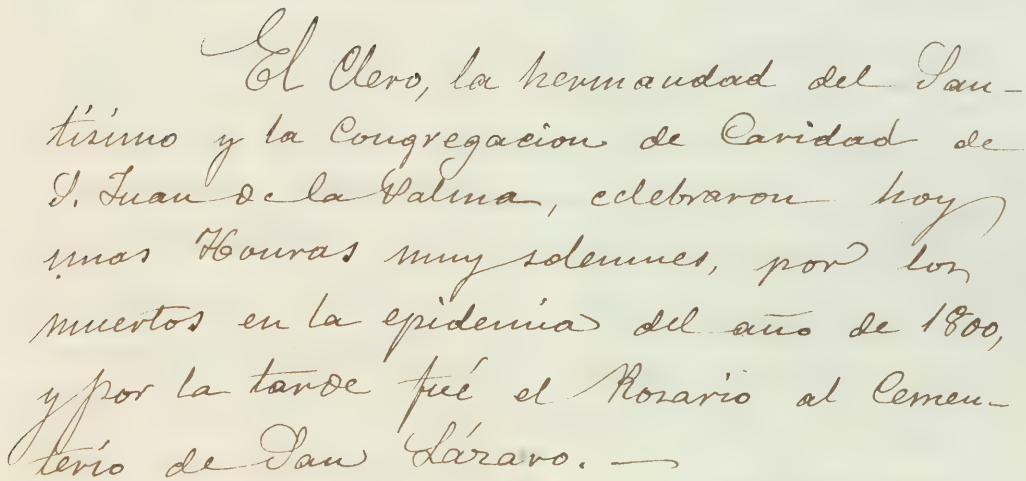 El Clero, la hermandad del San-
tísimo y la Congregacion de Caridad de
S. Juan de la Palma, celebraron hoy
unas Honras muy solemnes, por los
muertos en la epidemia del año de 1800,
y por la tarde fué el Rosario al Cemen-
terio de San Lázaro. —